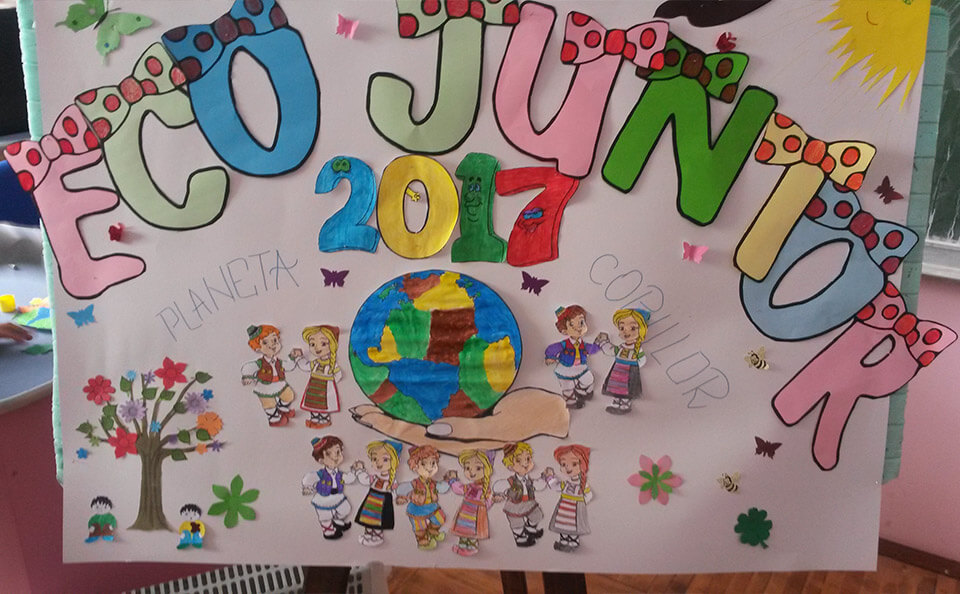 ECO JUNIOR
2017
PLANETA COPIILOR